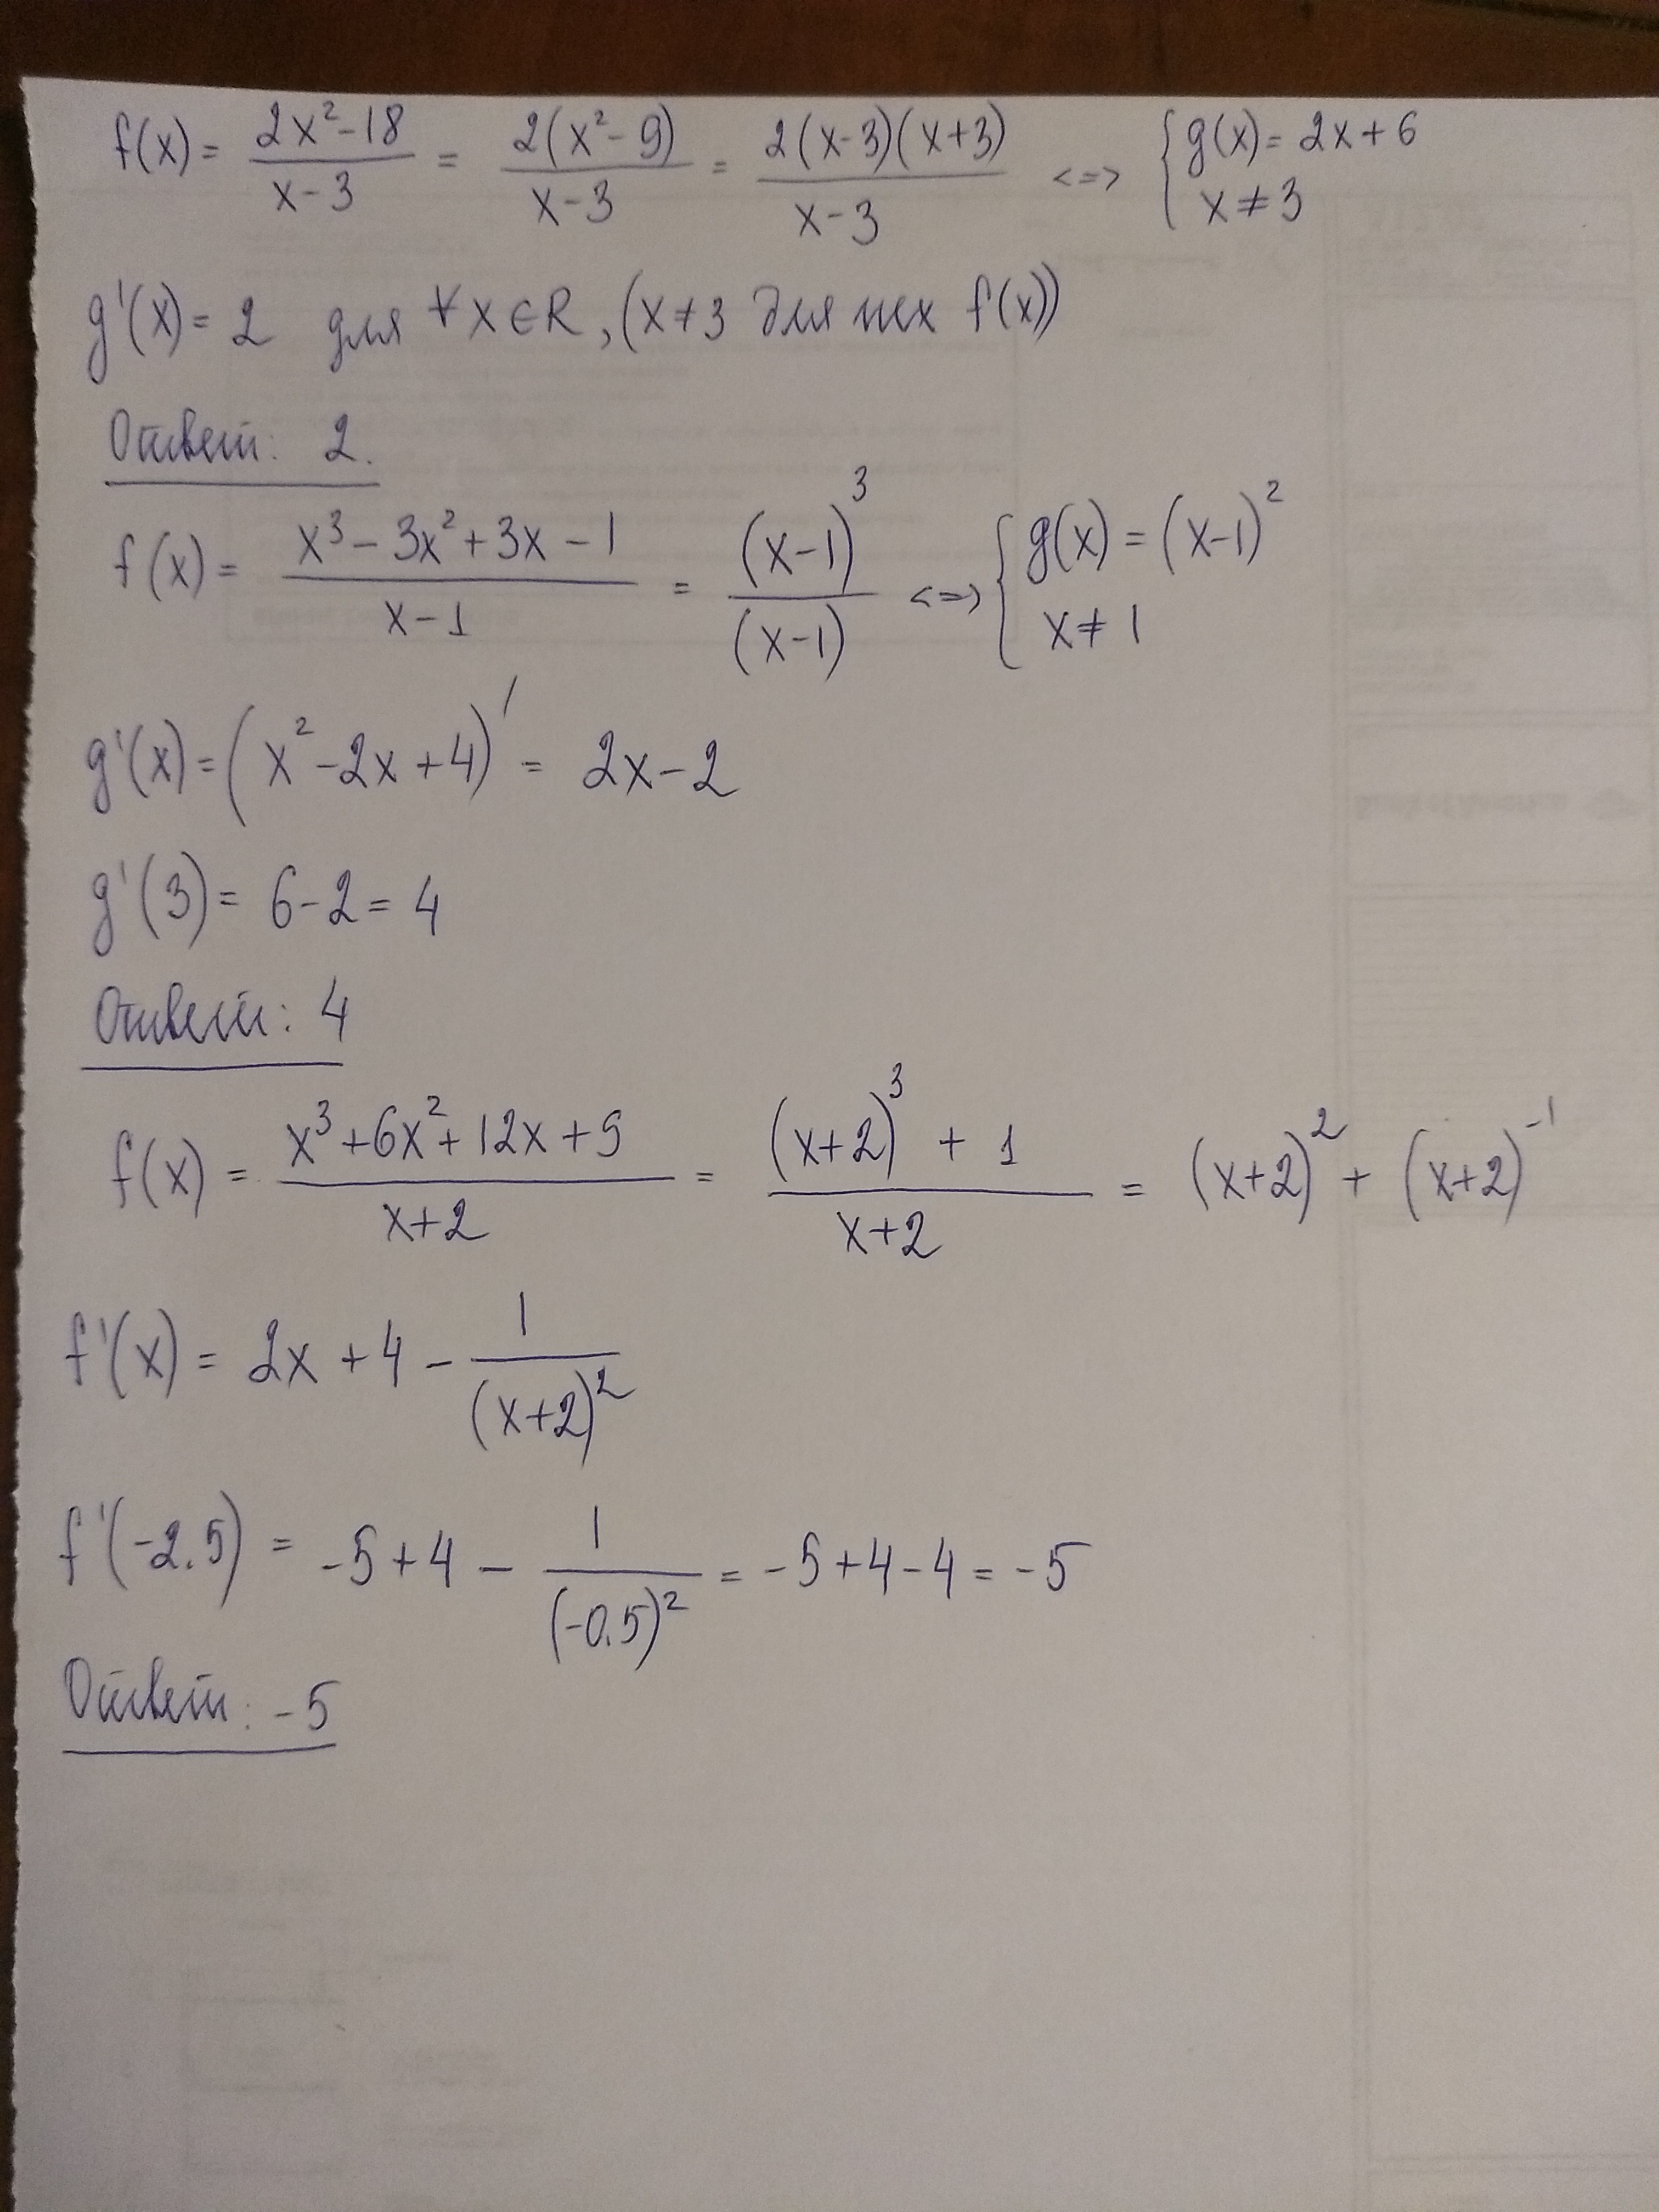 f(x) = \frac{2x^2-18}{x-3} = \frac{2(x^2-9)}{x-3} = \frac{2(x-3)(x+3)}{x-3} <=> { g(x) = 2x+6
x ≠ 3
g'(x) = 2 для ∀ x ∈ R, (x ≠ 3 для f(x))
Ответ: 2.
f(x) = \frac{x^3-3x^2+3x-1}{x-1} = \frac{(x-1)^3}{(x-1)} <=> { g(x) = (x-1)^2
x ≠ 1
g'(x) = (x^2-2x+4)' = 2x-2
g'(3) = 6-2 = 4
Ответ: 4
f(x) = \frac{x^3+6x^2+12x+9}{x+2} = \frac{(x+2)^3+1}{x+2} = (x+2)^2 + (x+2)^{-1}
f'(x) = 2x+4 - \frac{1}{(x+2)^2}
f'(-2.5) = -5+4 - \frac{1}{(-0.5)^2} = -5+4-4 = -5
Ответ: -5